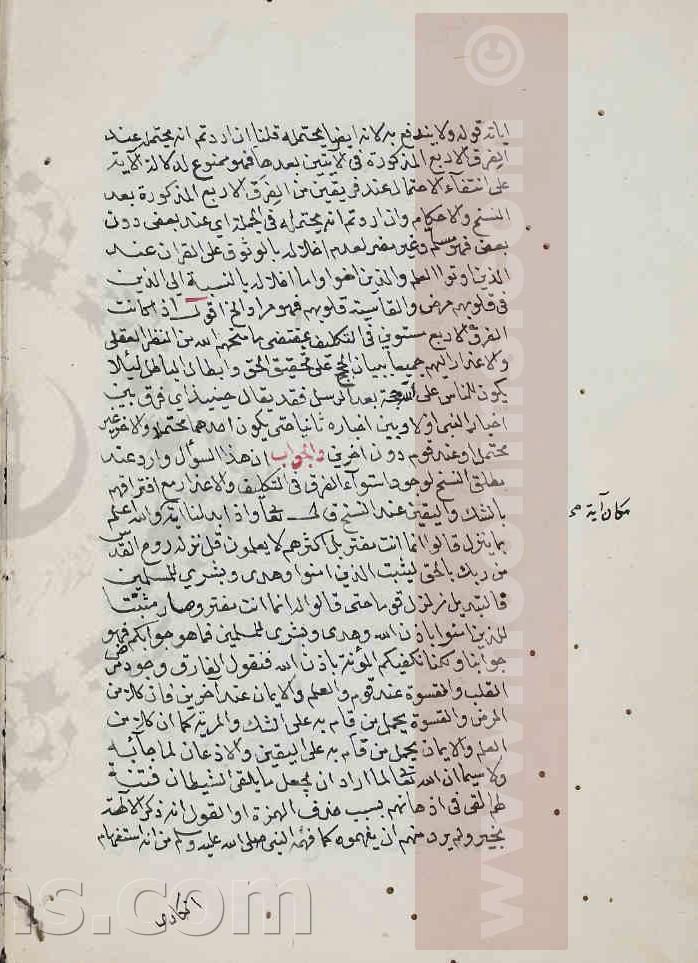 اياته قوله ولا يندفع به لانه ايضا يحتمله قلنا ان اردتم انه يحتمله عند
الفرق الاربع المذكورة في الآيتين بعدها فهو ممنوع لدلالة الآية
على انتفاء الاحتمال عند فريقين من الفرق الاربع المذكورة بعد
النسخ والاحكام وان اردتم انه يحتمله في الجملة اي عند بعض دون
بعض فهو مسلم وغير مضر لعدم اخلاله بالوثوق على القران عند
الذين اوتوا العلم والذين امنوا واما اخلاله بالنسبة الى الذين
في قلوبهم مرض والقاسية قلوبهم فهو مراد والخ اقول اذا كانت
الفرق الاربع مستوين في التكليف بمقتضى ما منحهم الله من النظر العقلي
والاعذار اليهم جميعا ببيان الحجج على تحقيق الحق وابطال الباطل لئلا
يكون للناس على الله حجة بعد الرسل فقد يقال حينئذ اي فرق بين
اخبار النبي اولا وبين اخباره ثانيا حتى يكون احدهما محتملا والاخر غير
محتمل او عند قوم دون اخرين والجواب ان هذا السؤال وارد عند
مطلق النسخ لوجود استواء الفرق في التكليف والاعذار مع افتراقهم
بالشك واليقين عند النسخ قال تعالى واذا بدلنا آية والله اعلم
مكان آية صح
بما ينزل قالوا انما انت مفتر بل اكثرهم لا يعلمون قل نزله روح القدس
من ربك بالحق ليثبت الذين امنوا وهدى وبشرى للمسلمين
فالتبديل زلزل قوما حتى قالوا انما انت مفتر وصار مثبتا
للذين امنوا باذن الله وهدى وبشرى للمسلمين فما هو جوابكم فهو
جوابنا المؤنة باذن الله فنقول الفارق وجود مرض
القلب والقسوة عند قوم والعلم والايمان عند آخرين فان كلا من
المرض والقسوة يحمل من قام به على الشك والمرية كما ان كلا من
العلم والايمان يحمل من قام به على اليقين والاذعان لما جاء به
ولا سيما ان الله تعالى لما اراد ان يجعل ما يلقي الشيطان فتنة
لهم القى في اذهانهم بسبب حذف الهمزة او القول انه ذكر الالهة
بخير ولم يرد منهم ان يفهموه كما فهمه النبي صلى الله عليه وسلم من انه استفهام
انكاري
ns.com
©
www.